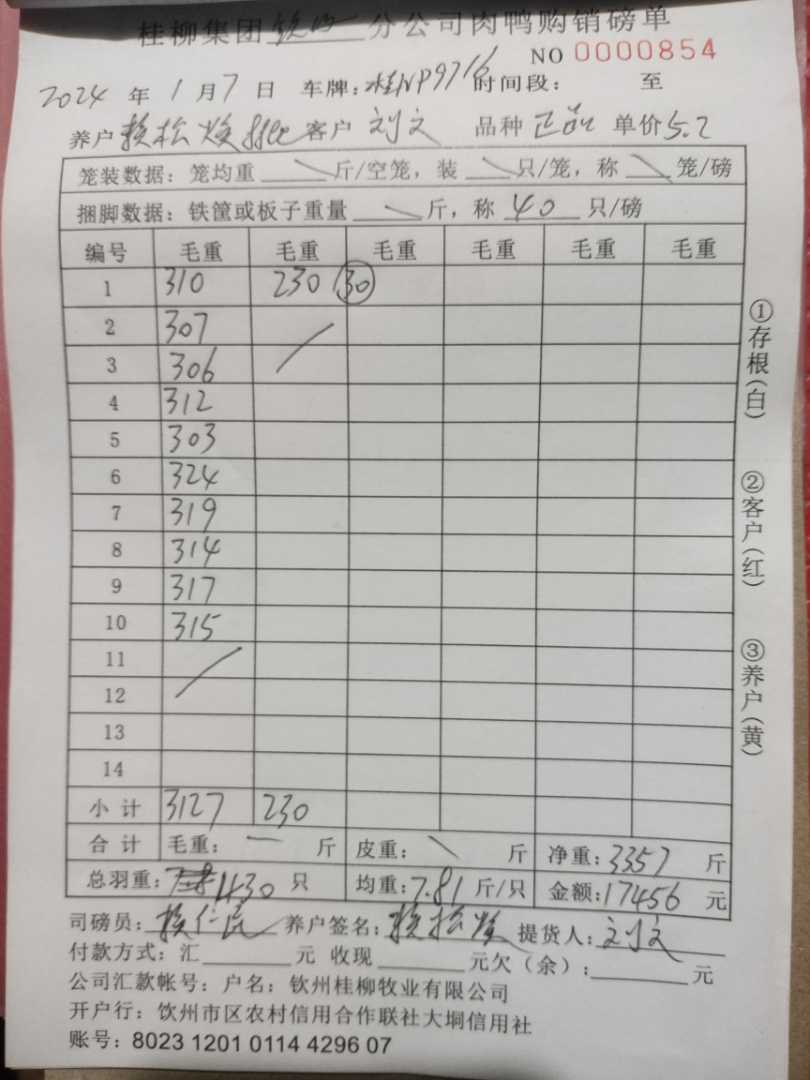 桂柳集团钦州一分公司肉鸭购销磅单
NO 0000854
2024年1月7日 车牌：桂NP9716 时间段： 至
养户 客户 刘文 品种 正品 单价5.2
笼装数据：笼均重 斤/空笼，装 只/笼，称 笼/磅
捆脚数据：铁筐或板子重量 斤，称 40 只/磅
编号 毛重 毛重 毛重 毛重 毛重 毛重
1 310 230 30
2 307
3 306
4 312
5 303
6 324
7 319
8 314
9 317
10 315
11
12
13
14
小计 3127 230
合计 毛重：一 斤 皮重： 斤 净重：3357 斤
总羽重：430 只 均重：7.81 斤/只 金额：17456 元
司磅员： 养户签名： 提货人：刘文
付款方式：汇 元 收现 元欠（余）： 元
公司汇款帐号：户名：钦州桂柳牧业有限公司
开户行：饮州市区农村信用合作联社大垌信用社
账号：8023 1201 0114 4296 07
①存根（白）
②客户（红）
③养户（黄）